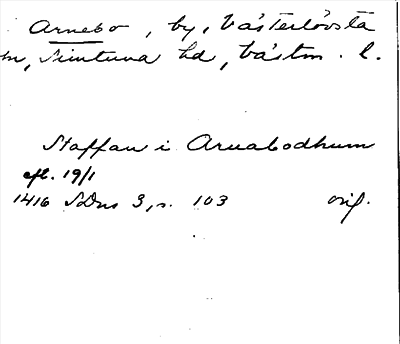 Arnebo, by, Västerlövsta
sn, Simtuna hd, Västm. l.
Staffan i Arnabodhum
eft. 19/1
1416 SDns 3, s. 103 orig.